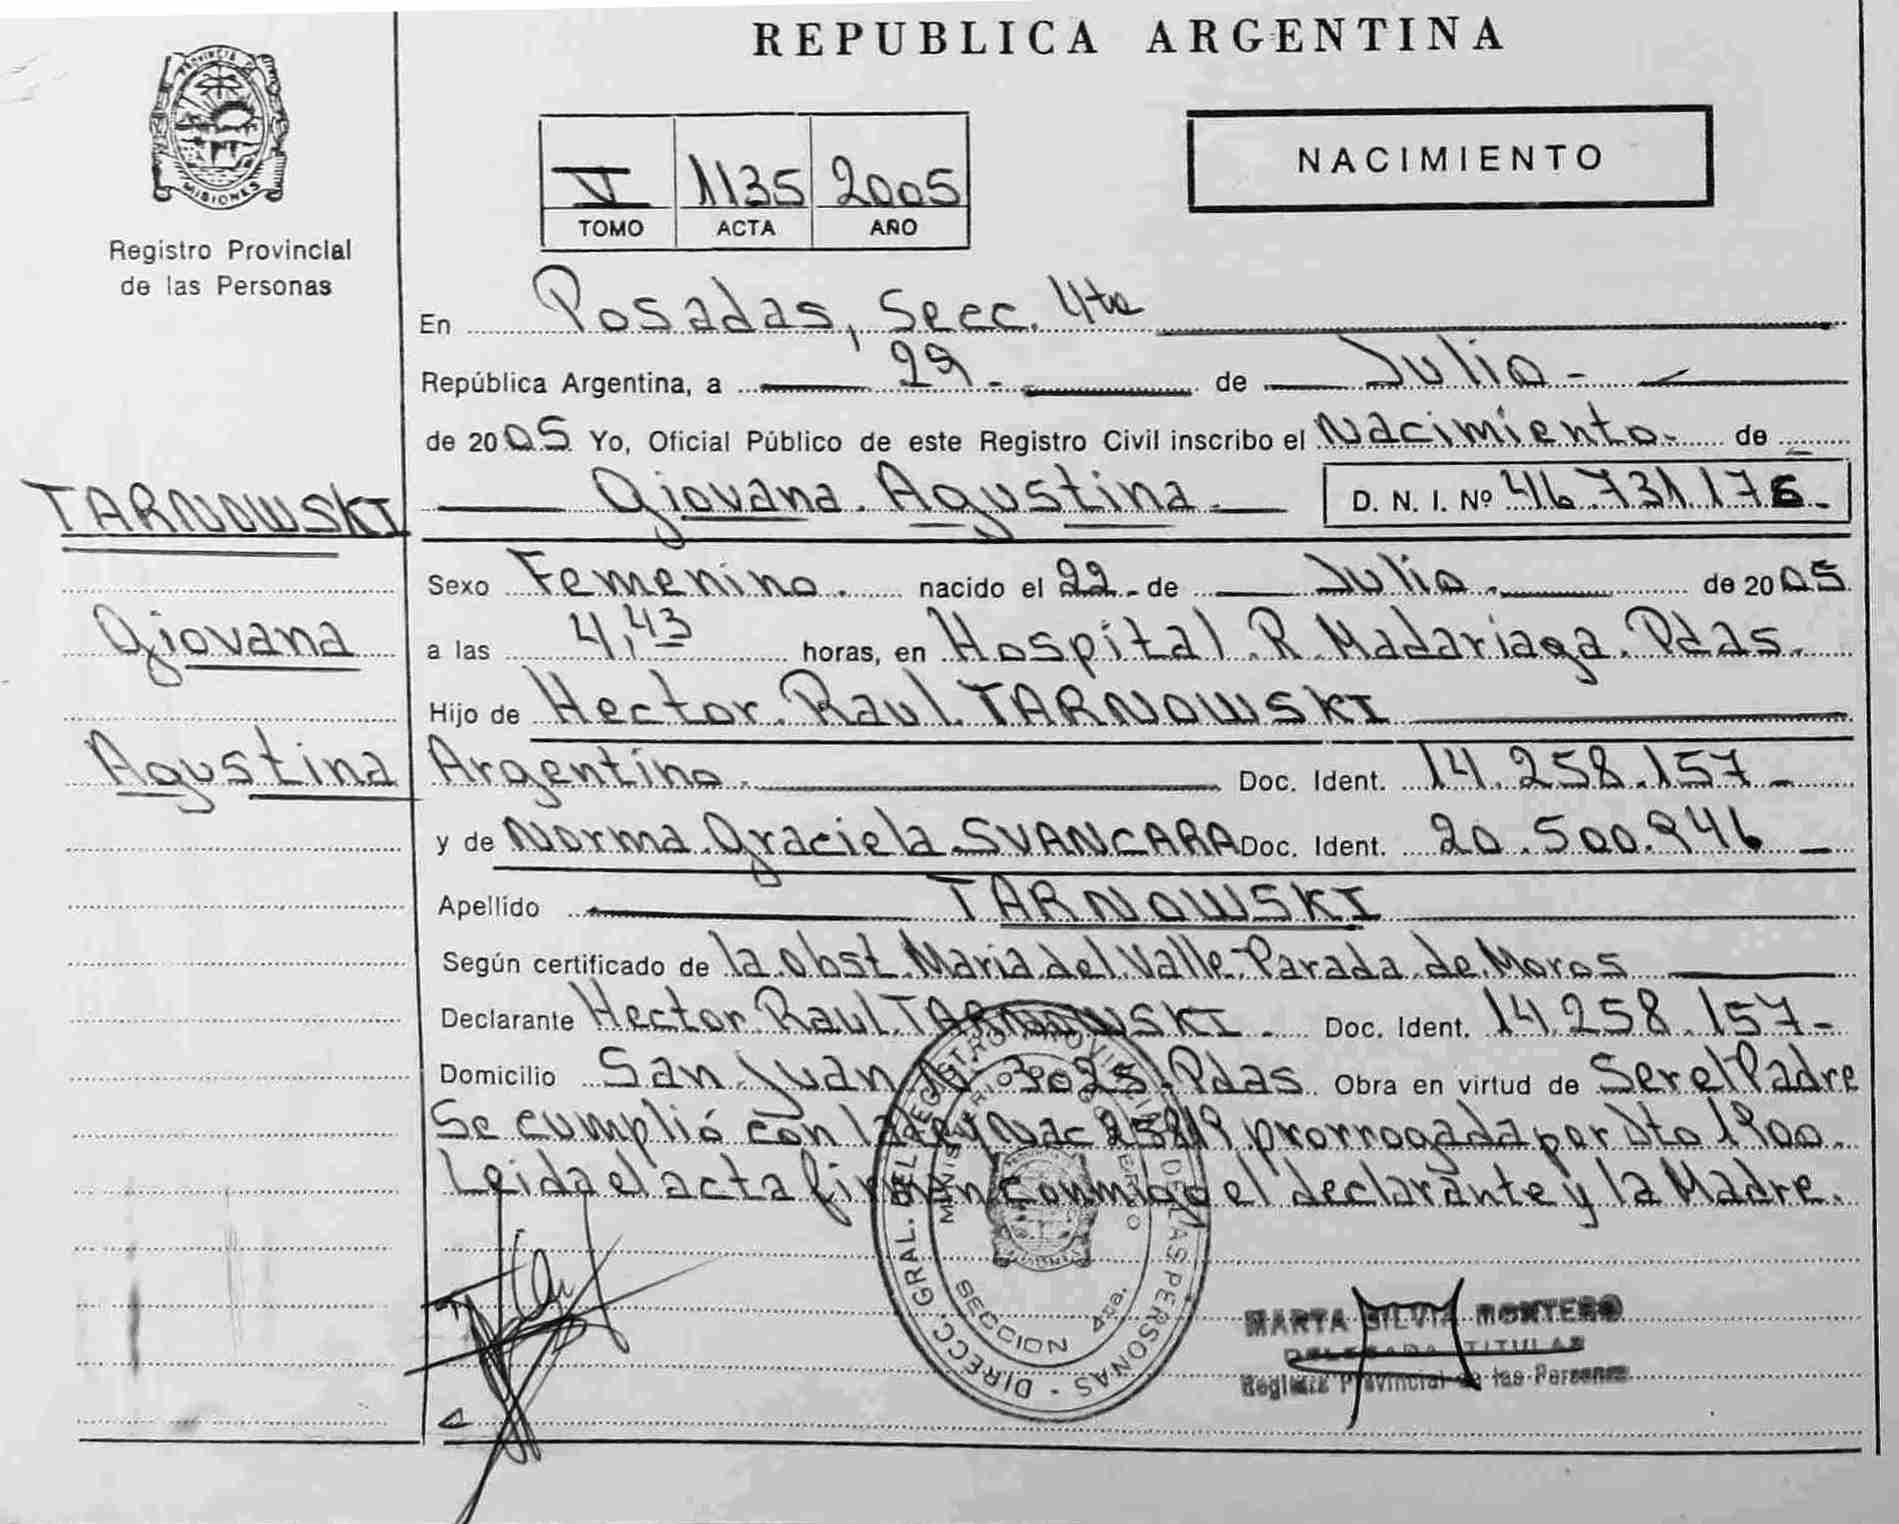 REPUBLICA ARGENTINA
PROVINCIA DE
MISIONES
Registro Provincial
de las Personas
V 1135 2005
TOMO ACTA AÑO
NACIMIENTO
En Posadas, Secc. 4ta
República Argentina, a 29 - de Julio -
de 2005 Yo, Oficial Público de este Registro Civil inscribo el Nacimiento de
Giovana Agustina D. N. I. Nº 46.731.176-
TARNOWSKI
Giovana
Agustina
Sexo Femenino nacido el 22 - de Julio de 2005
a las 4,43 horas, en Hospital R. Madariaga. Pdas.
Hijo de Hector Raul TARNOWSKI
Argentino. Doc. Ident. 14.258.157-
y de Norma Graciela SVANCARA Doc. Ident. 20.500.946 -
Apellido TARNOWSKI
Según certificado de la obst. Maria del Valle Parada de Moros
Declarante Hector Raul TARNOWSKI - Doc. Ident. 14.258.157-
Domicilio San Juan Nº 3025 - Pdas. Obra en virtud de Ser el Padre
Se cumplió con la Ley Nac 25819 prorrogada por Dto 1900.
Leida el acta firman conmigo el declarante y la Madre.
DIRECC. GRAL. DEL REGISTRO PROVINCIAL DE LAS PERSONAS -
MINISTERIO DE GOBIERNO
SECCION 4ta.
MARTA SILVIA MONTERO
DELEGADA TITULAR
Registro Provincial de las Personas